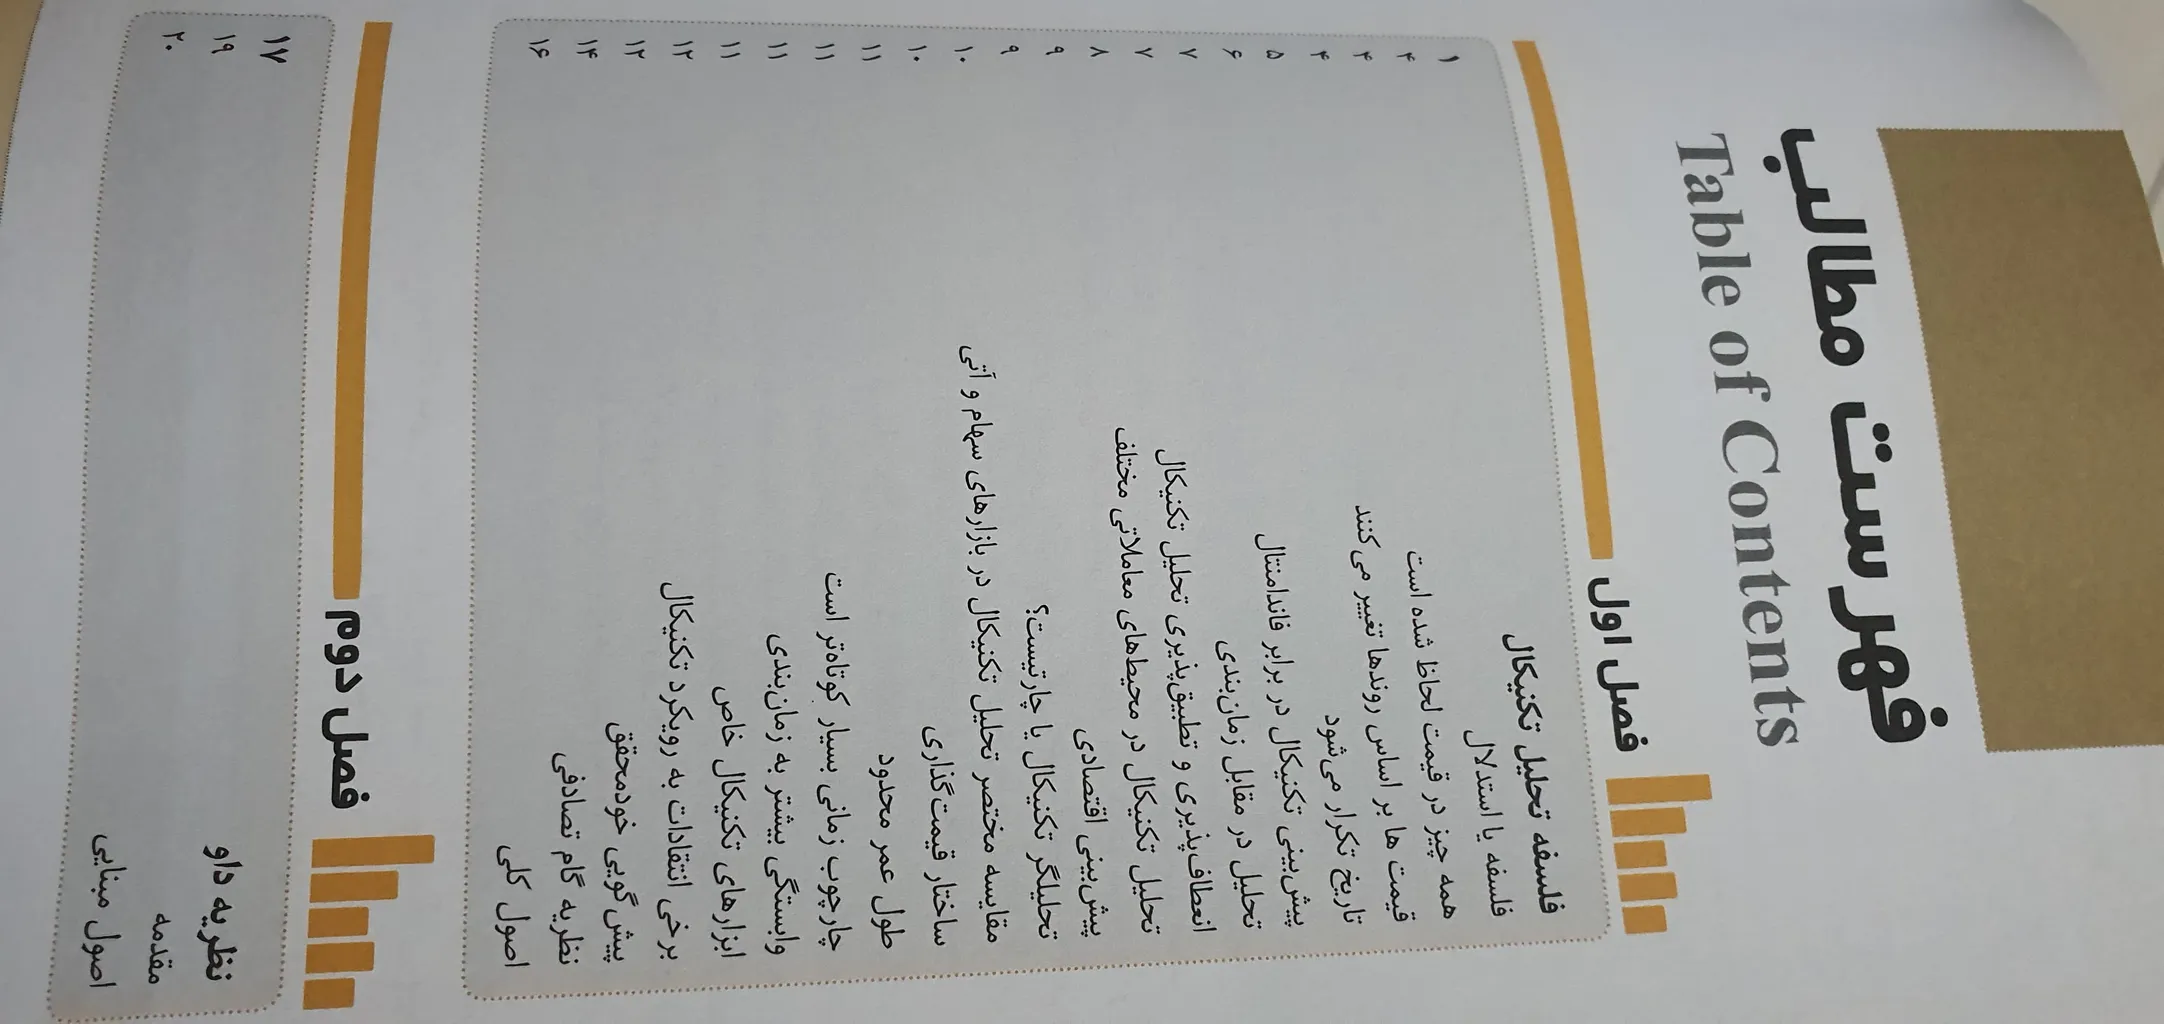 فهرست مطالب
Table of Contents
فصل اول
فلسفه تحلیل تکنیکال ۱
فلسفه یا استدلال ۴
همه چیز در قیمت لحاظ شده است ۴
قیمت ها بر اساس روندها تغییر می‌کنند ۴
تاریخ تکرار می‌شود ۵
پیش‌بینی تکنیکال در برابر فاندامنتال ۶
تحلیل در مقابل زمان‌بندی ۷
انعطاف‌پذیری و تطبیق‌پذیری تحلیل تکنیکال ۷
تحلیل تکنیکال در محیط‌های معاملاتی مختلف ۸
پیش‌بینی اقتصادی ۹
تحلیلگر تکنیکال یا چارتیست؟ ۹
مقایسه مختصر تحلیل تکنیکال در بازارهای سهام و آتی ۱۰
ساختار قیمت‌گذاری ۱۰
طول عمر محدود ۱۱
چارچوب زمانی بسیار کوتاه‌تر است ۱۱
وابستگی بیشتر به زمان‌بندی ۱۱
ابزارهای تکنیکال خاص ۱۱
برخی انتقادات به رویکرد تکنیکال ۱۲
پیش‌گویی خودمحقق ۱۲
نظریه گام تصادفی ۱۴
اصول کلی ۱۶
فصل دوم
نظریه داو ۱۷
مقدمه ۱۹
اصول مبنایی ۲۰